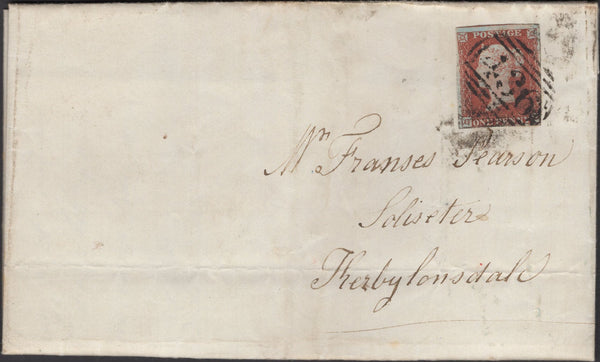 POSTAGE
ONE PENNY
Mr Franses Pearson
Soliseter
Kerbylonsdale